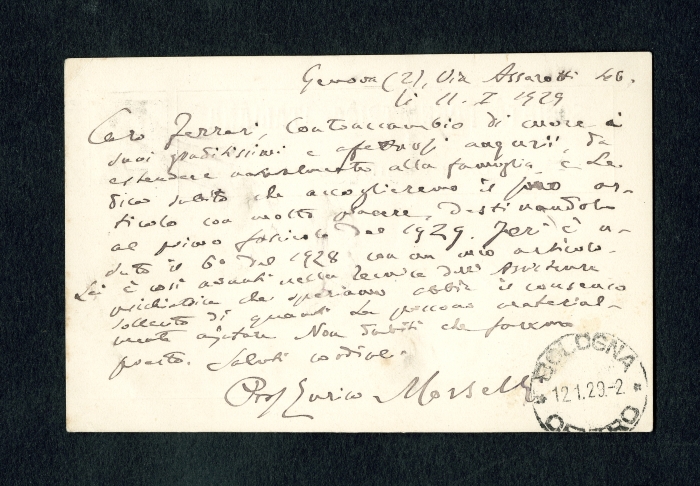 Genova (2), Via Assarotti 46.
li 11. I 1929
Caro Ferrari, Contraccambio di cuore i
suoi graditissimi e affettuosi auguri, da
estendere naturalmente alla famiglia, e Le
dico subito che accoglieremo il suo ar-
ticolo con molto piacere, destinandolo
al primo fascicolo del 1929. Jeri è u-
scito il 6º del 1928 con un mio articolo.
Lei è così avanti nella tecnica dell'Assistenza
psichiatrica che speriamo abbia il consenso
soltanto di quanti La possono material-
mente ajutare. Non dubiti che faremo
presto. Saluti cordiali.
Prof Enrico Morselli
BOLOGNA
12.1.29.-2
CENTRO